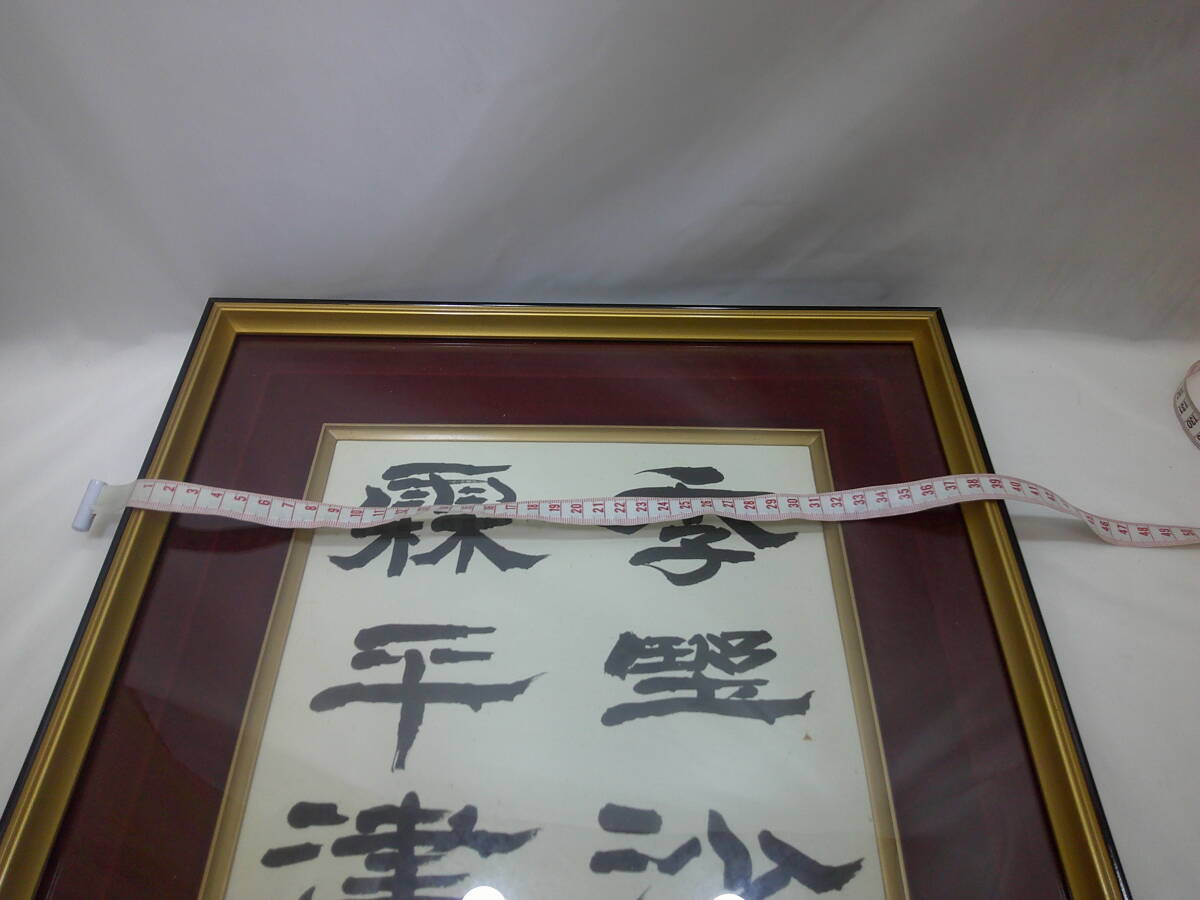 聖
霖平津
1 2 3 4 5 6 7 8 9 10 11 12 13 14 15 16 17 18 19 20 21 22 23 24 25 26 27 28 29 30 31 32 33 34 35 36 37 38 39 40 41 42 46 47 48 49 50
131 130